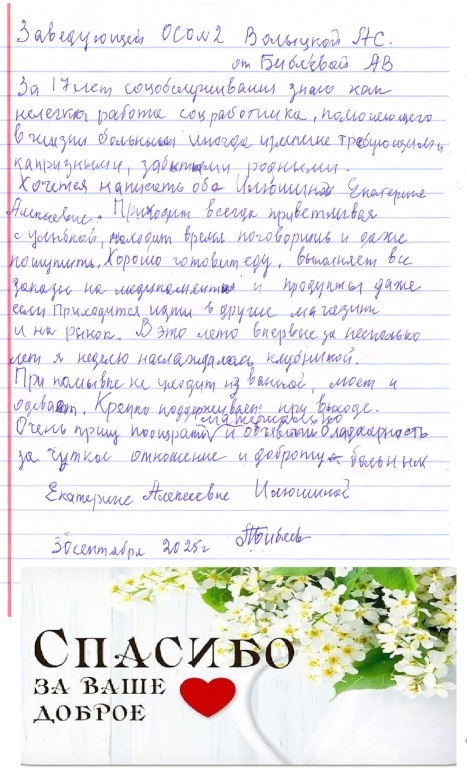 Заведующей ОСОМ2 Волыцкой АС.
от Библевой АВ
За 17 лет соцобслуживания знаю как
нелегка работа соцработника, помогающего
в жизни больным иногда излишне требующими
капризными, забытыми родными.
Хочется написать об Илюшиной Екатерине
Алексеевне. Приходит всегда приветливая
с улыбкой, находит время поговорить и даже
пошутить. Хорошо готовит еду, выполняет все
заказы на медикаменты и продукты даже
если приходится идти в другие магазины
и на рынок. В это лето впервые за несколько
лет я неделю наслаждалась клубникой.
При помывке не уходит из ванной, моет и
одевает. Крепко поддерживает при выходе.
материально
Очень прошу поощрить и объявить благодарность
за чуткое отношение и доброту к больным
Екатерине Алексеевне Илюшиной
30 сентября 2025г
СПАСИБО
ЗА ВАШЕ
ДОБРОЕ